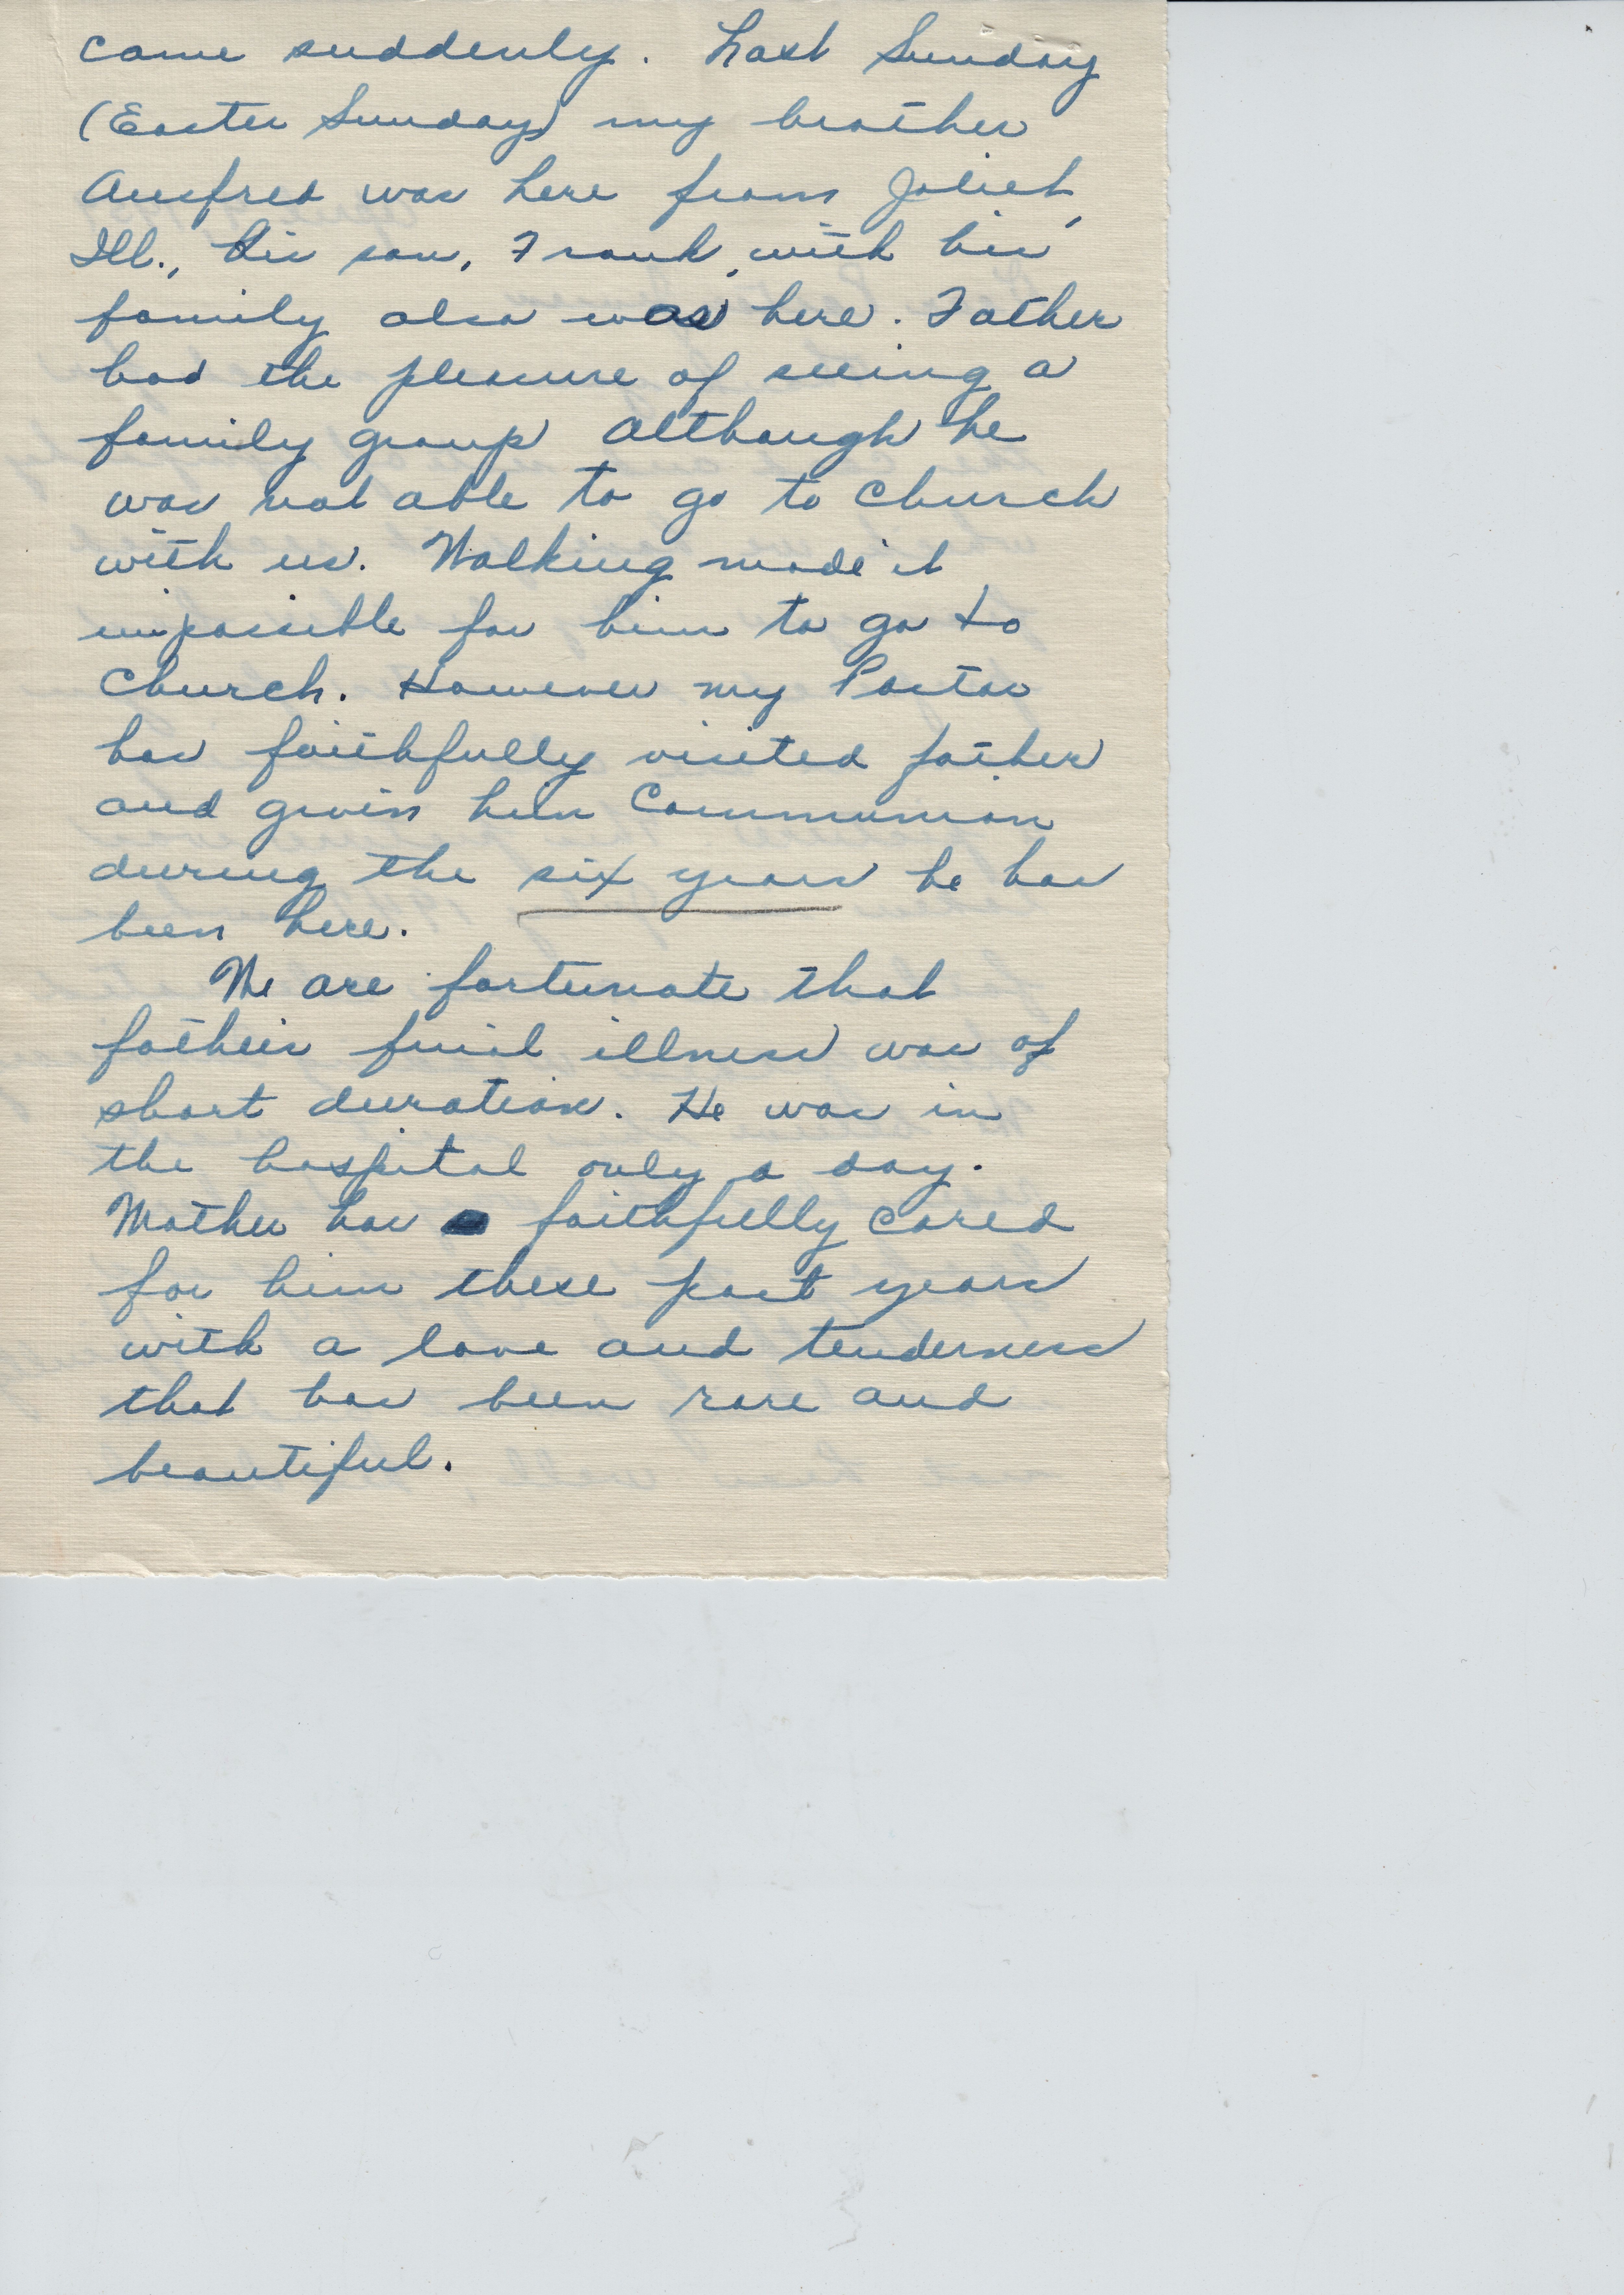 came suddenly. Last Sunday
(Easter Sunday) my brother
Ansfred was here from Joliet,
Ill., his son, Frank, with his
family also was here. Father
had the pleasure of seeing a
family group although he
was not able to go to church
with us. Walking made it
impossible for him to go to
church. However my Pastor
has faithfully visited father
and given him Communion
during the six years he has
been here.
We are fortunate that
father's final illness was of
short duration. He was in
the hospital only a day.
Mother has faithfully cared
for him these past years
with a love and tenderness
that has been rare and
beautiful.